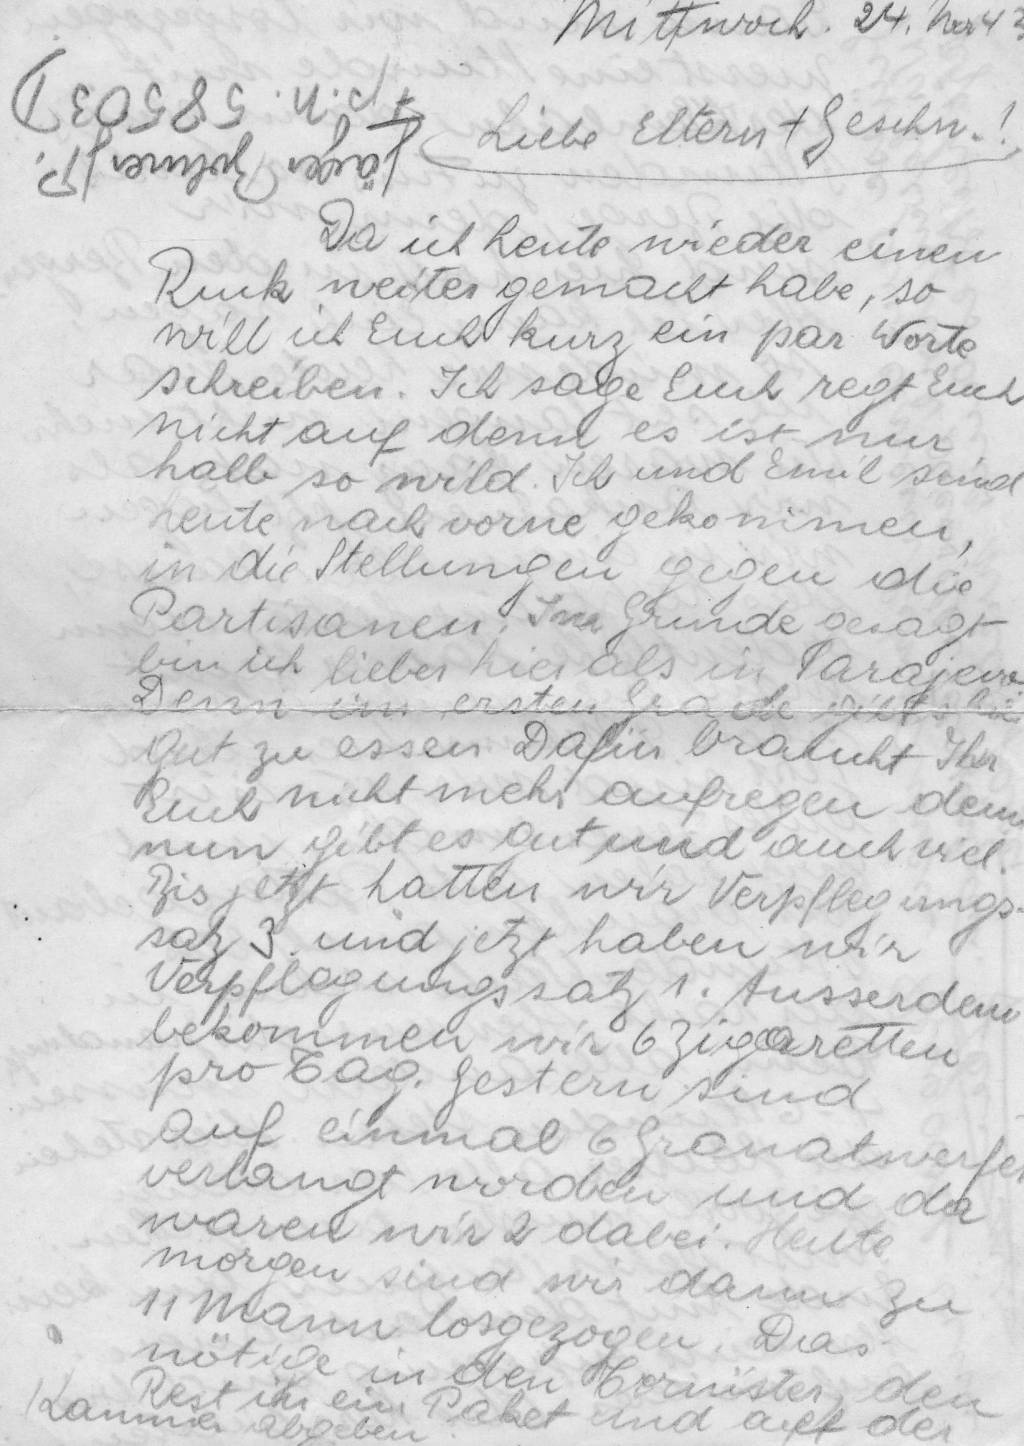 Mittwoch. 24. Nov 43
Jäger
F.P.N. 58503 D
Liebe Eltern + Geschw.!
Da ich heute wieder einen
Ruck weiter gemacht habe, so
will ich Euch kurz ein par Worte
schreiben. Ich sage Euch regt Euch
nicht auf denn es ist nur
halb so wild. Ich und Emil sind
heute nach vorne gekommen,
in die Stellungen gegen die
Partisanen. Im Grunde gesagt
bin ich lieber hier als in Sarajevo
Denn im ersten Grade gibts hier
gut zu essen Dafür braucht Ihr
Euch nicht mehr aufregen denn
nun gibt es gut und auch viel.
Bis jetzt hatten wir Verpflegungs-
satz 3 und jetzt haben wir
Verpflegungssatz 1. Ausserdem
bekommen wir 6 Zigaretten
pro Tag. Gestern sind
auf einmal 6 Granatwerfer
verlangt worden und da
waren wir 2 dabei. Heute
morgen sind wir dann zu
11 Mann losgezogen. Das
nötige in den Tornister, den
Rest in ein Paket und auf der
Kammer abgeben.